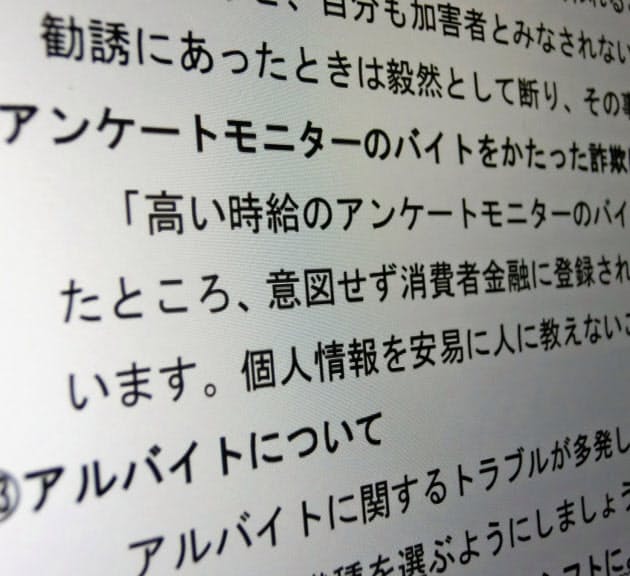 自分も加害者とみなされない
勧誘にあったときは毅然として断り、その事
アンケートモニターのバイトをかたった詐欺
「高い時給のアンケートモニターのバイ
たところ、意図せず消費者金融に登録され
います。個人情報を安易に人に教えないこ
③アルバイトについて
アルバイトに関するトラブルが多発し
を選ぶようにしましょう